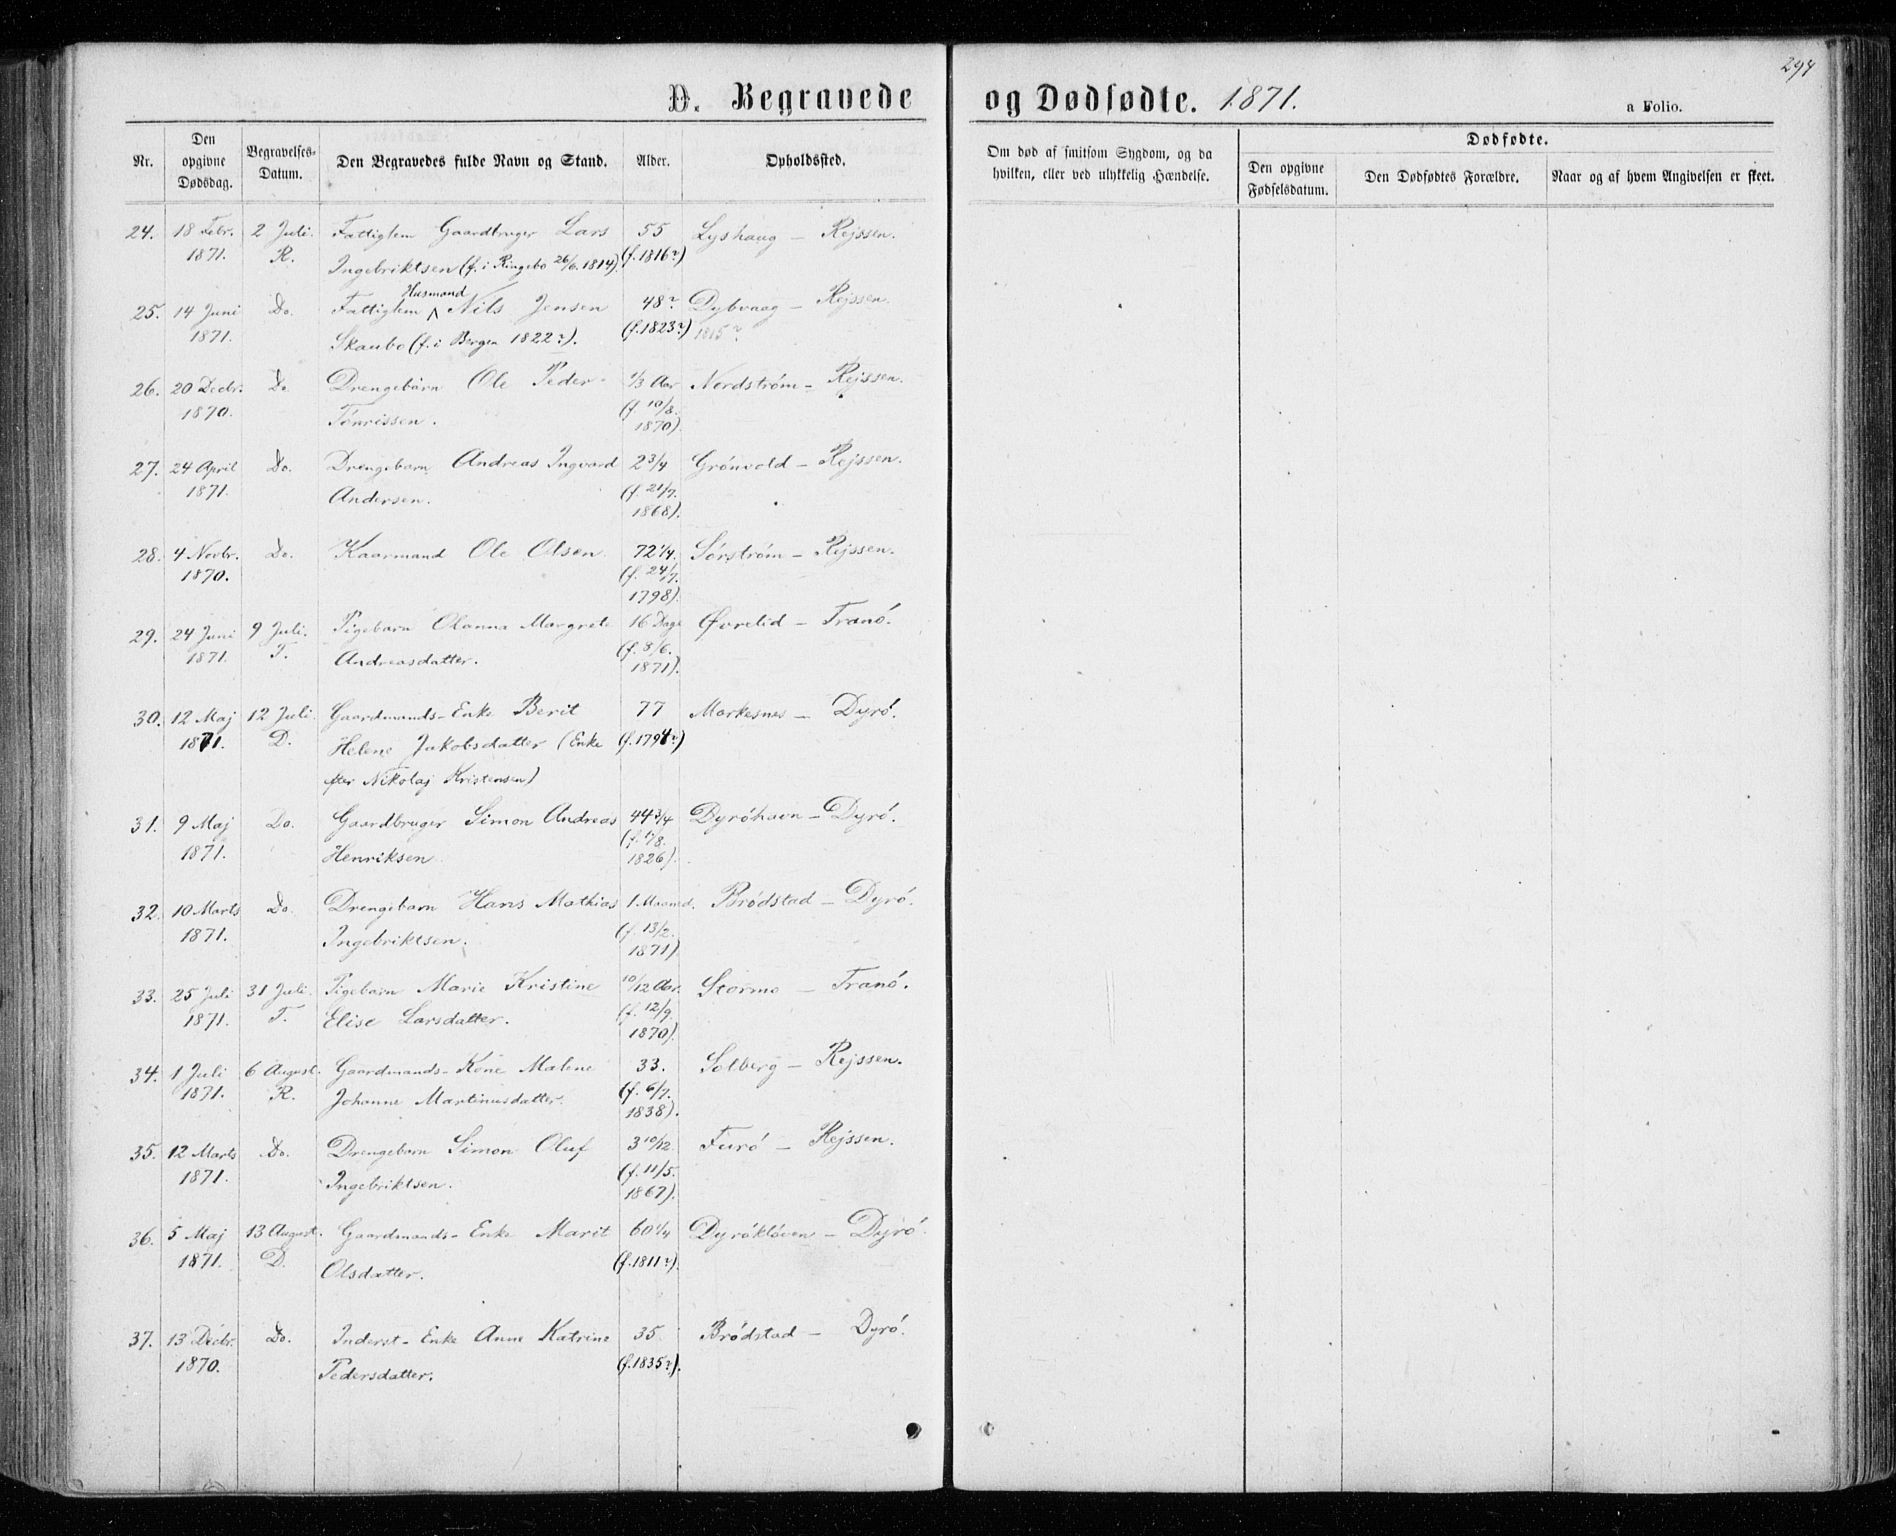 294
D. Begravede og Dødfødte. 1871.
a Folio.
Nr.
Den opgivne Dødsdag.
Begravelses-Datum.
Den Begravedes fulde Navn og Stand.
Alder.
Opholdssted.
Om død af smitsom Sygdom, og da hvilken, eller ved ulykkelig Hændelse.
Dødfødte.
Den opgivne Fødselsdatum.
Den Dødfødtes Forældre.
Naar og af hvem Angivelsen er skeet.
24. 18 Febr. 2 Juli. Fattiglem Gaardbruger Lars 55 Lyshaug - Rejssen.
1871. R. Ingebriktsen (f. i Ringebo 26/6. 1814). (f. 1816?)
Husmand
25. 14 Juni Do. Fattiglem ^ Nils Jensen 48? Dybvaag - Rejssen.
1871. Skaubo (f. i Bergen 1822?). (f. 1823?) 1815?
26. 20 Decbr. Do. Drengebarn Ole Peder 1/3 Aar Nordstrøm - Rejssen.
1870. Tønrissen. (f. 10/8.
1870).
27. 24 April Do. Drengebarn Andreas Ingvard 2 3/4 Grønvold - Rejssen.
1871. Andersen. (f. 21/7.
1868).
28. 4 Novbr. Do. Kaarmand Ole Olsen 72 1/4. Sørstrøm - Rejssen.
1870. (f. 24/7.
1798).
29. 24 Juni 9 Juli. Pigebarn Olanna Margrete 16 Dage Øvrelid - Tranø.
1871. T. Andreasdatter. (f. 8/6.
1871).
30. 12 Maj 12 Juli. Gaardmands-Enke Berit 77 Markesnes - Dyrø.
1871. D. Helene Jakobsdatter (Enke (f. 1794?)
efter Nikolaj Kristensen)
31. 9 Maj Do. Gaardbruger Simon Andreas 44 3/4 Dyrøhavn - Dyrø.
1871. Henriksen (f. 1/8.
1826).
32. 10 Marts Do. Drengebarn Hans Mathias 1 Maaned. Brødstad - Dyrø.
1871. Ingebriktsen. (f. 13/2.
1871).
33. 25 Juli 31 Juli. Pigebarn Marie Kristine 10/12 Aar. Stormo - Tranø.
1871. T. Elise Larsdatter. (f. 12/9.
1870).
34. 1 Juli 6 August. Gaardmands-Kone Malene 33. Solberg - Rejssen.
1871. R. Johanne Martinusdatter. (f. 6/7.
1838).
35. 12 Marts Do. Drengebarn Simon Oluf 3 10/12. Furø - Rejssen.
1871. Ingebriktsen. (f. 11/5.
1867).
36. 5 Maj 13 August. Gaardmands-Enke Marit 60 1/4 Dyrøkløven - Dyrø.
1871. D. Olsdatter. (f. 1811?).
37. 13 Decbr. Do. Inderst-Enke Anne Katrine 35. Brødstad - Dyrø.
1870. Pedersdatter. (f. 1835?).